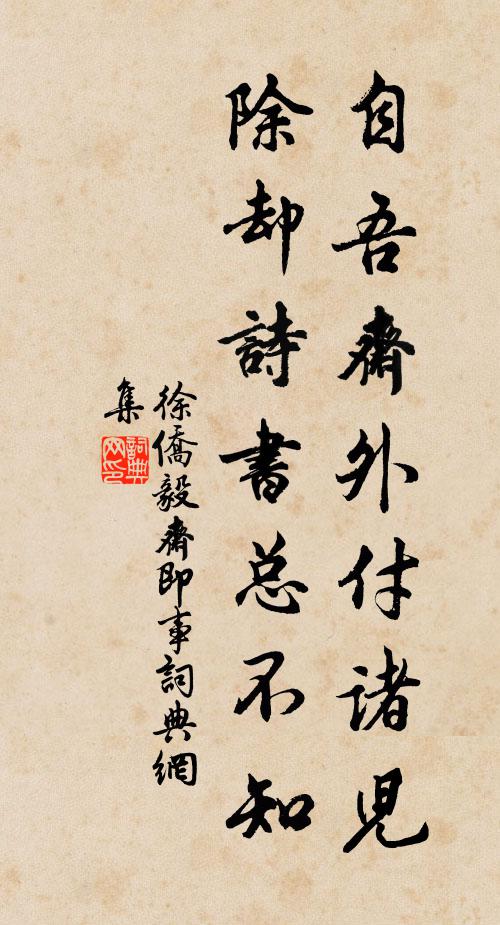 自吾齋外付諸児
除却詩書总不知
徐僑毅齋即事詞典網
集
詞典
网印